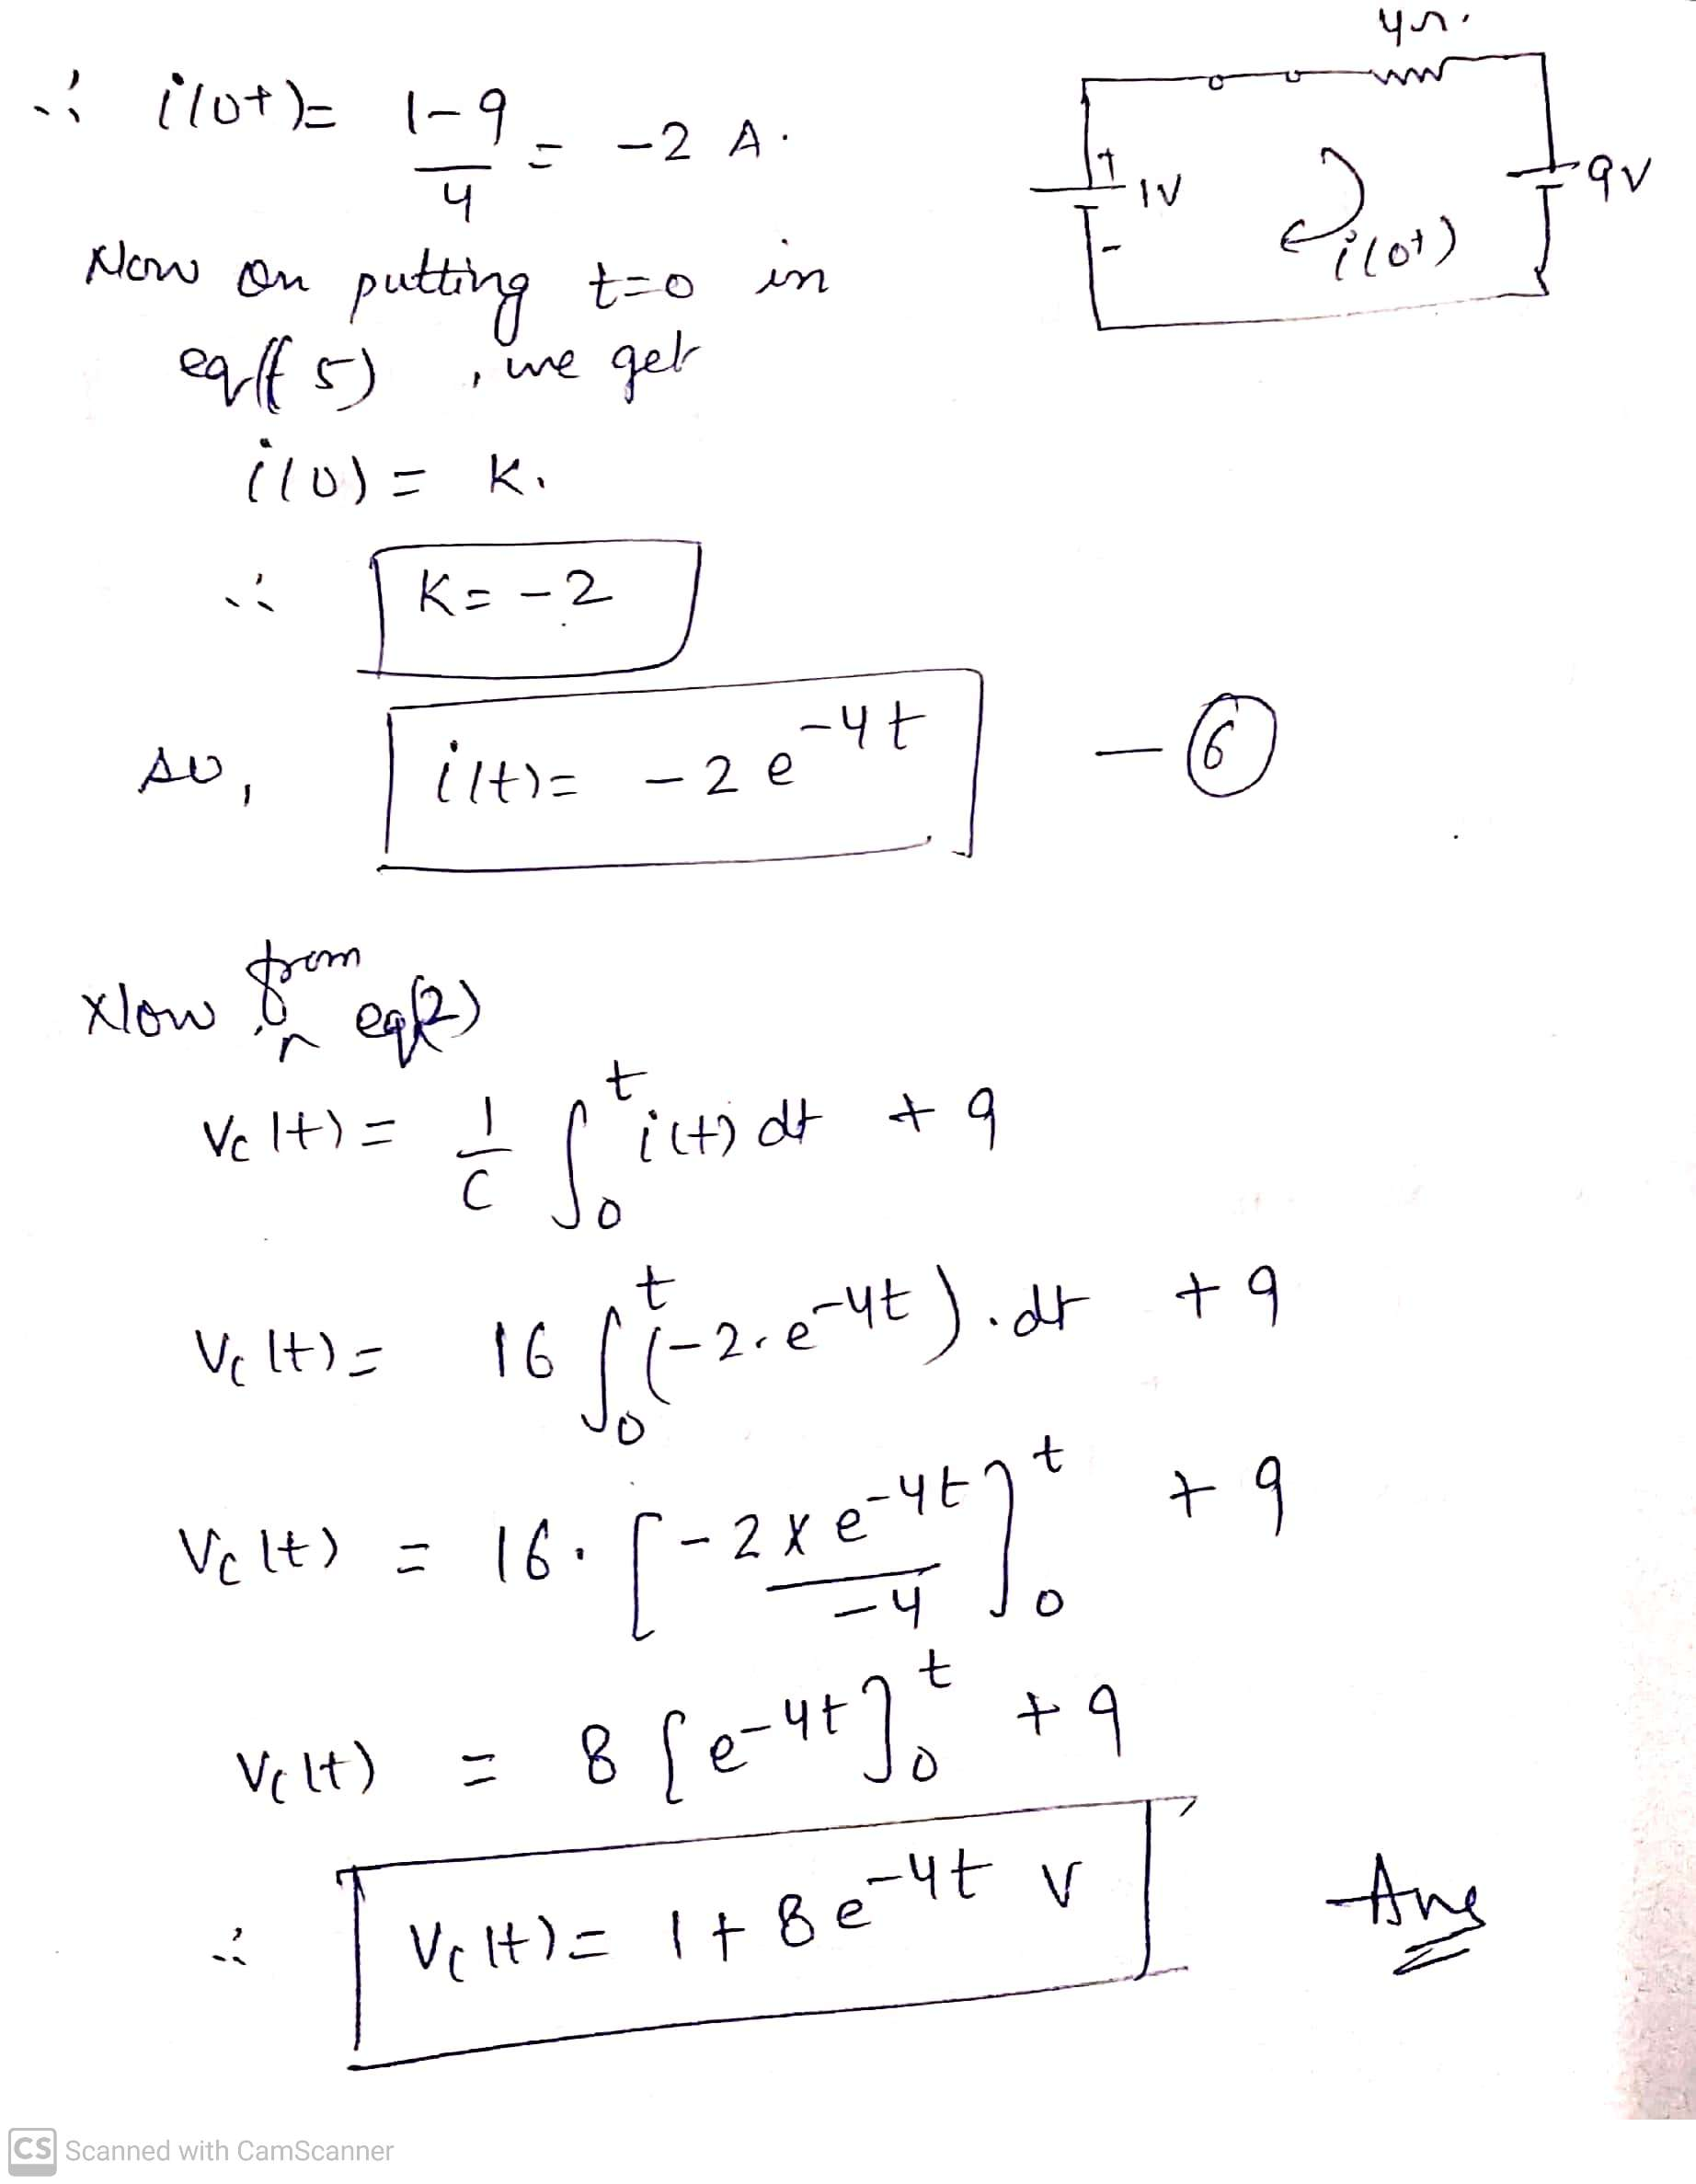 ∴ i(0+) = (1-9)/4 = -2 A.
4Ω.
+ 1V -
i(0+)
9V
Now on putting t=0 in
eq(5), we get
i(0) = K.
∴ K = -2
so, i(t) = -2 e^-4t — ⑥
Now from eq(2)
Vc(t) = 1/C ∫₀^t i(t) dt + 9
Vc(t) = 16 ∫₀^t (-2.e^-4t).dt + 9
Vc(t) = 16. [-2 x e^-4t / -4]₀^t + 9
Vc(t) = 8 [e^-4t]₀^t + 9
∴ Vc(t) = 1 + 8 e^-4t V Ans
CS Scanned with CamScanner